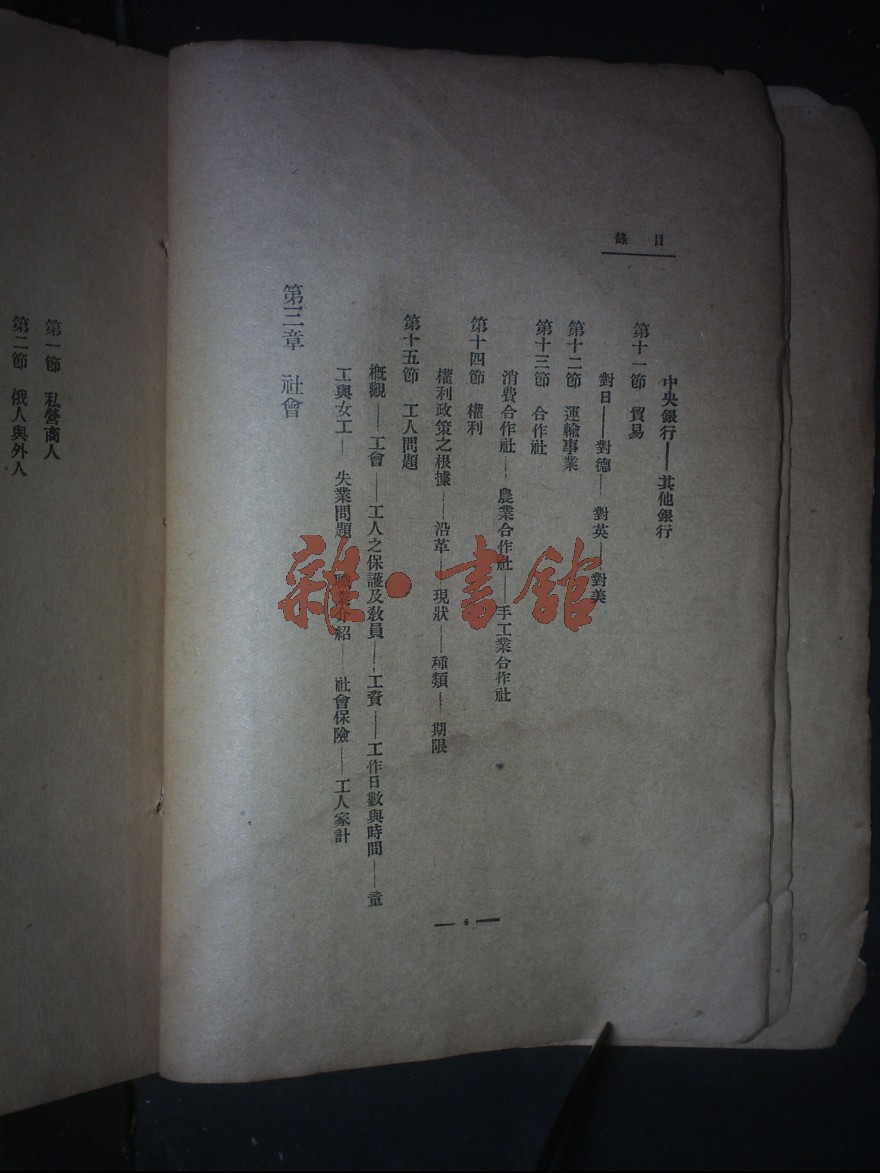 目錄
中央銀行——其他銀行
第十一節　貿易
對日——對德——對英——對美
第十二節　運輸事業
第十三節　合作社
消費合作社——農業合作社——手工業合作社
第十四節　權利
權利政策之根據——沿革——現狀——種類——期限
第十五節　工人問題
概觀——工會——工人之保護及教員——工資——工作日數與時間——童
工與女工——失業問題——職業介紹——社會保險——工人家計
第三章　社會
— 4 —
第一節　私營商人
第二節　俄人與外人
雜·書館